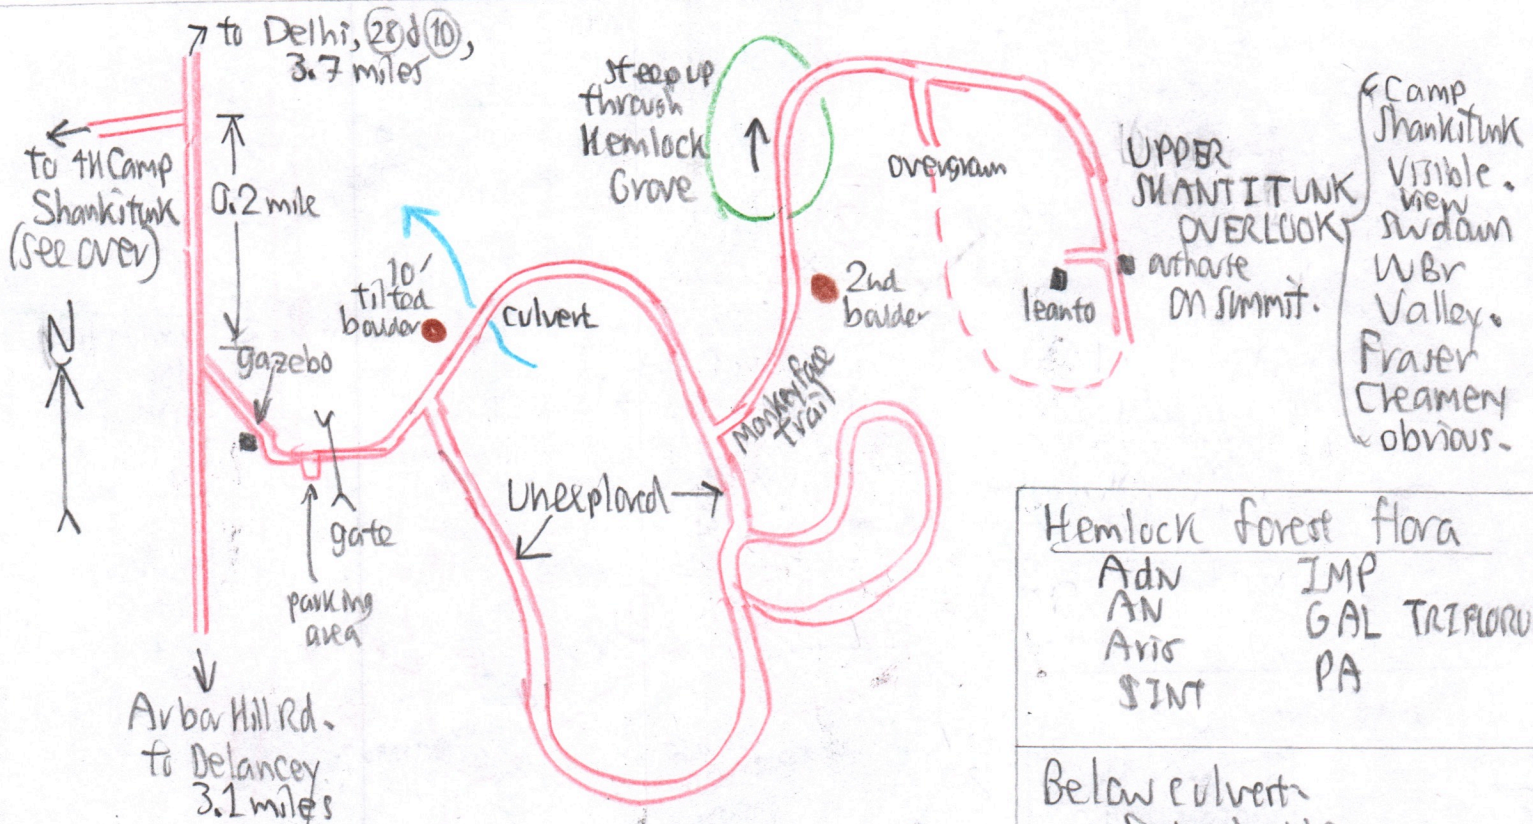 to Delhi, 28 & 10,
3.7 miles
to 4H Camp
Shankitunk
(see over)
0.2 mile
N
gazebo
10'
tilted
boulder
culvert
gate
parking
area
Arbor Hill Rd.
to Delancey
3.1 miles
Unexplored
steep up
through
Hemlock
Grove
2nd
boulder
Monkeyface
trail
overgrown
leanto
outhouse
on summit.
UPPER
SHANTITUNK
OVERLOOK
Camp
Shankitunk
Visible.
view
SW down
WBr
Valley.
Fraser
Creamery
obvious.
Hemlock forest flora
AdN
AN
Aris
SINT
IMP
GAL TRIFLORU
PA
Below culvert